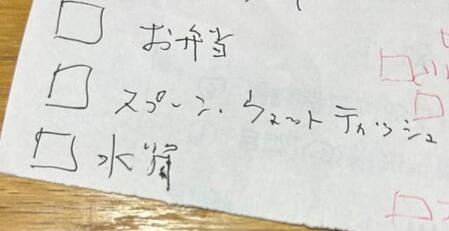 □ お弁当
□ スプーン、ウェットティッシュ
□ 水筒